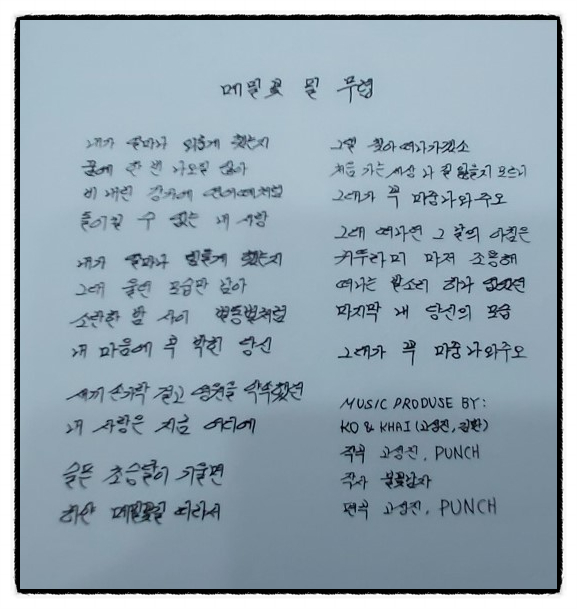 메밀꽃 필 무렵
내가 얼마나 외롭게 했는지
꿈에 한 번 나오질 않아
비 내린 강가에 연어떼처럼
돌이킬 수 없는 내 사랑
내가 얼마나 힘들게 했는지
그대 울던 모습만 남아
소란한 밤 사이 별똥별처럼
내 마음에 콕 박힌 당신
새끼 손가락 걸고 영원을 약속했던
내 사랑은 지금 어디에
슬픈 초승달이 기울면
하얀 메밀꽃길 따라서
그댈 찾아 떠나가겠소
처음 가는 세상 나 길 잃을지 모르니
그대가 꼭 마중 나와주오
그대 떠나면 그 날의 아침은
귀뚜라미 마저 조용해
떠나는 발소리 하나 없었던
마지막 내 당신의 모습
그대가 꼭 마중 나와주오
MUSIC PRODUSE BY:
KO & KHAI (고영진, 김환)
작곡 고영진, PUNCH
작사 불꽃남자
편곡 고영진, PUNCH